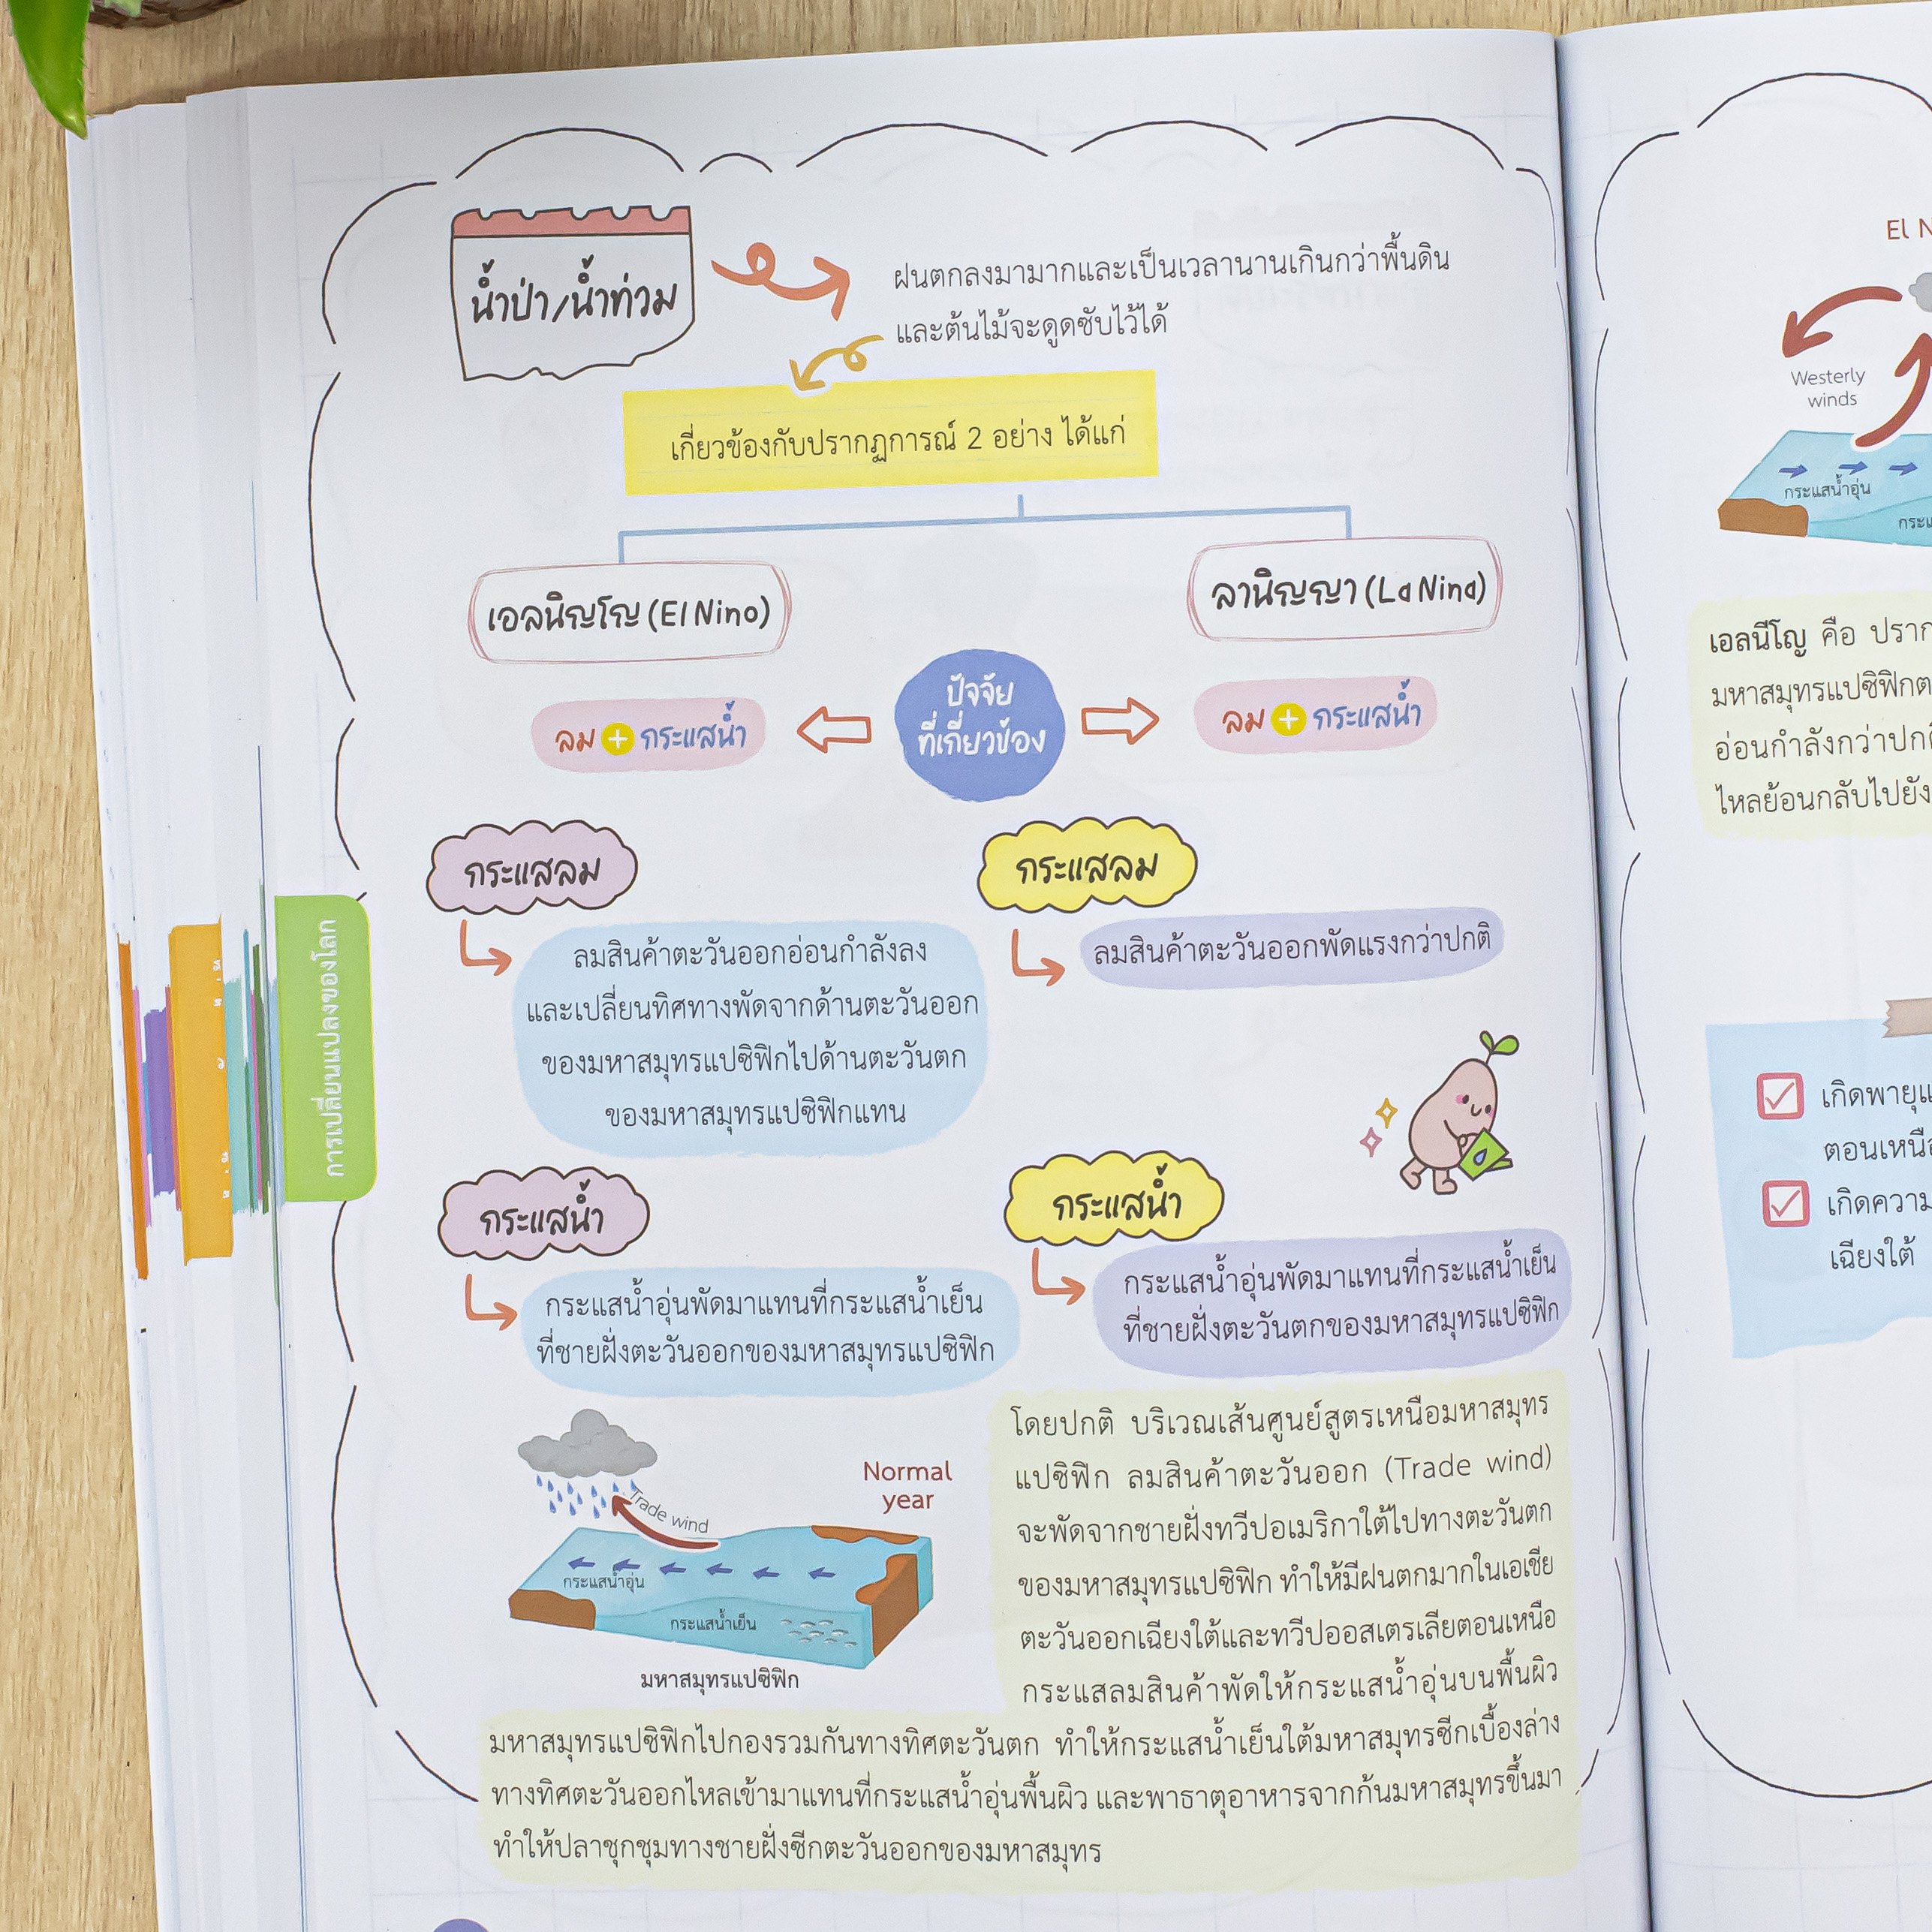 น้ำป่า/น้ำท่วม
ฝนตกลงมามากและเป็นเวลานานเกินกว่าพื้นดิน
และต้นไม้จะดูดซับไว้ได้
เกี่ยวข้องกับปรากฏการณ์ 2 อย่าง ได้แก่
เอลนิญโญ (El Nino)
ลานิญญา (La Nina)
ลม + กระแสน้ำ
ปัจจัย
ที่เกี่ยวข้อง
ลม + กระแสน้ำ
กระแสลม
ลมสินค้าตะวันออกอ่อนกำลังลง
และเปลี่ยนทิศทางพัดจากด้านตะวันออก
ของมหาสมุทรแปซิฟิกไปด้านตะวันตก
ของมหาสมุทรแปซิฟิกแทน
กระแสลม
ลมสินค้าตะวันออกพัดแรงกว่าปกติ
กระแสน้ำ
กระแสน้ำอุ่นพัดมาแทนที่กระแสน้ำเย็น
ที่ชายฝั่งตะวันออกของมหาสมุทรแปซิฟิก
กระแสน้ำ
กระแสน้ำอุ่นพัดมาแทนที่กระแสน้ำเย็น
ที่ชายฝั่งตะวันตกของมหาสมุทรแปซิฟิก
Normal
year
Trade wind
กระแสน้ำอุ่น
กระแสน้ำเย็น
มหาสมุทรแปซิฟิก
โดยปกติ บริเวณเส้นศูนย์สูตรเหนือมหาสมุทร
แปซิฟิก ลมสินค้าตะวันออก (Trade wind)
จะพัดจากชายฝั่งทวีปอเมริกาใต้ไปทางตะวันตก
ของมหาสมุทรแปซิฟิก ทำให้มีฝนตกมากในเอเชีย
ตะวันออกเฉียงใต้และทวีปออสเตรเลียตอนเหนือ
กระแสลมสินค้าพัดให้กระแสน้ำอุ่นบนพื้นผิว
มหาสมุทรแปซิฟิกไปกองรวมกันทางทิศตะวันตก ทำให้กระแสน้ำเย็นใต้มหาสมุทรซีกเบื้องล่าง
ทางทิศตะวันออกไหลเข้ามาแทนที่กระแสน้ำอุ่นพื้นผิว และพาธาตุอาหารจากก้นมหาสมุทรขึ้นมา
ทำให้ปลาชุกชุมทางชายฝั่งซีกตะวันออกของมหาสมุทร
การเปลี่ยนแปลงของโลก
El N
Westerly
winds
กระแสน้ำอุ่น
กระแ
เอลนีโญ คือ ปราก
มหาสมุทรแปซิฟิกต
อ่อนกำลังกว่าปกติ
ไหลย้อนกลับไปยัง
เกิดพายุแ
ตอนเหนือ
เกิดความ
เฉียงใต้